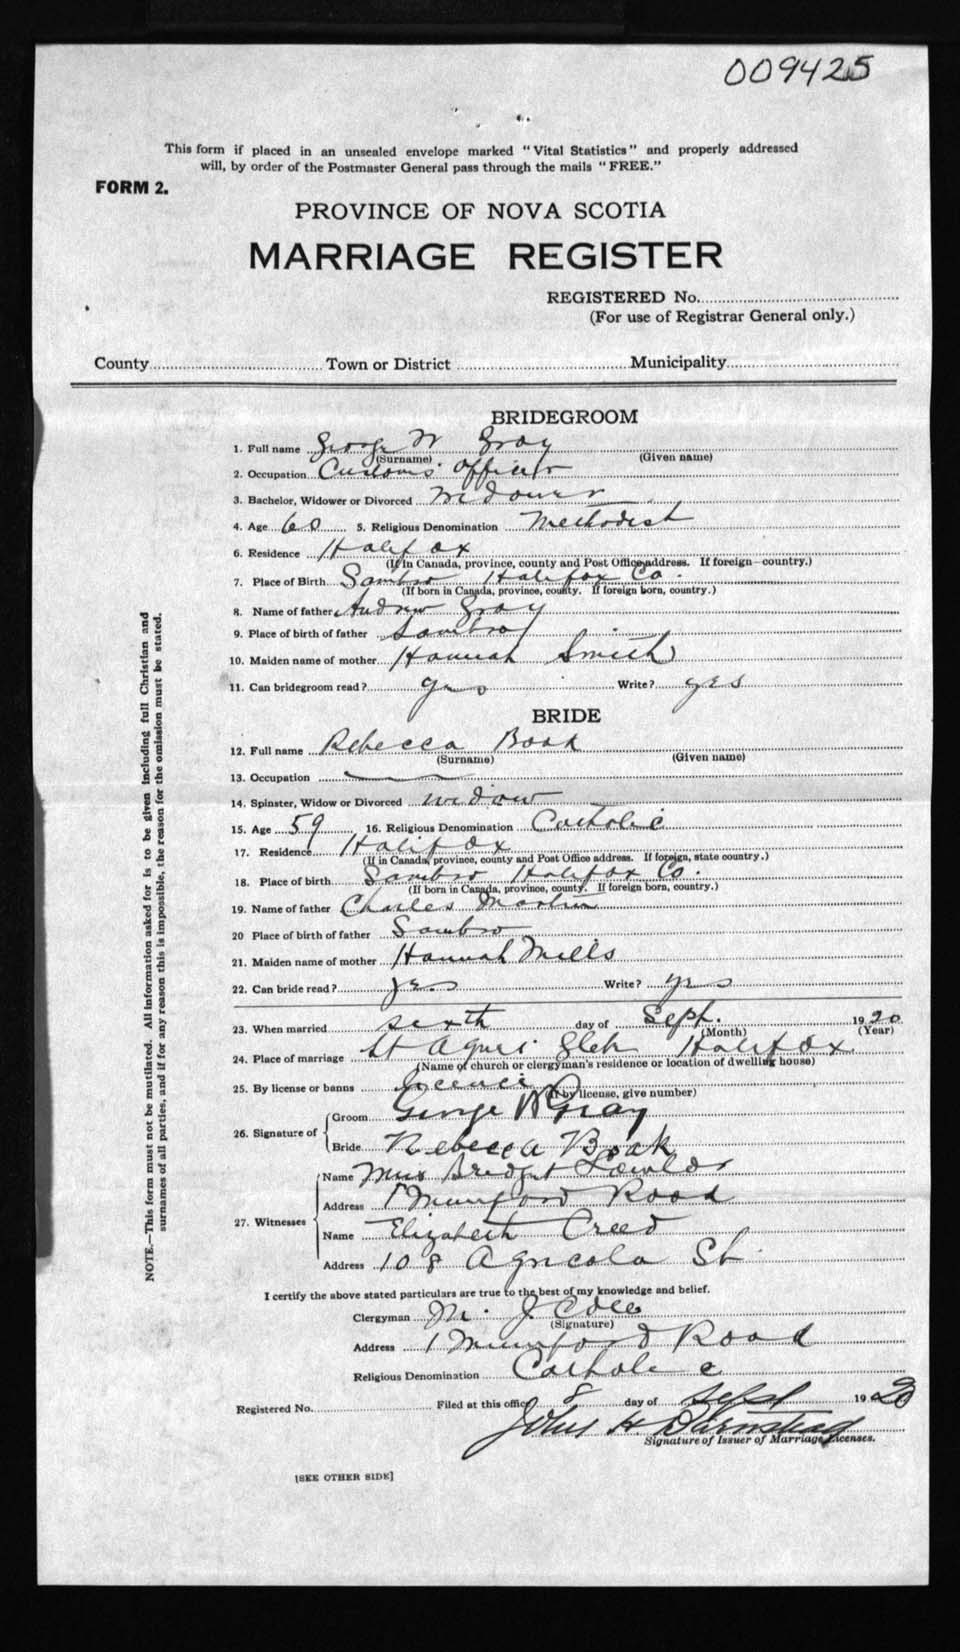 009425
This form if placed in an unsealed envelope marked "Vital Statistics" and properly addressed
will, by order of the Postmaster General pass through the mails "FREE."
FORM 2.
PROVINCE OF NOVA SCOTIA
MARRIAGE REGISTER
REGISTERED No.
(For use of Registrar General only.)
County Town or District Municipality
BRIDEGROOM
1. Full name George W Gray
(Surname) (Given name)
2. Occupation Customs Officer
3. Bachelor, Widower or Divorced Widower
4. Age 60 5. Religious Denomination Methodist
6. Residence Halifax
(If in Canada, province, county and Post Office address. If foreign—country.)
7. Place of Birth Sambro Halifax Co.
(If born in Canada, province, county. If foreign born, country.)
8. Name of father Andrew Gray
9. Place of birth of father Sambro
10. Maiden name of mother Hannah Smith
11. Can bridegroom read? yes Write? yes
BRIDE
12. Full name Rebecca Boak
(Surname) (Given name)
13. Occupation —
14. Spinster, Widow or Divorced widow
15. Age 59 16. Religious Denomination Catholic
17. Residence Halifax
(If in Canada, province, county and Post Office address. If foreign, state country.)
18. Place of birth Sambro Halifax Co.
(If born in Canada, province, county. If foreign born, country.)
19. Name of father Charles Martin
20 Place of birth of father Sambro
21. Maiden name of mother Hannah Mills
22. Can bride read? yes Write? yes
23. When married sixth day of Sept. 1920
(Month) (Year)
24. Place of marriage St Agnes Glebe Halifax
(Name of church or clergyman's residence or location of dwelling house)
25. By license or banns licence
(If by license, give number)
26. Signature of
Groom George W Gray
Bride Rebecca Boak
27. Witnesses
Name Mrs Bridget Lawlor
Address 1 Mumford Road
Name Elizabeth Creed
Address 108 Agricola St
I certify the above stated particulars are true to the best of my knowledge and belief.
Clergyman M. J. Cole
(Signature)
Address 1 Mumford Road
Religious Denomination Catholic
Registered No. Filed at this office 8 day of Sept 1920
John H Barnstead
Signature of Issuer of Marriage Licenses.
[SEE OTHER SIDE]
NOTE.—This form must not be mutilated. All information asked for is to be given including full Christian and
surnames of all parties, and if for any reason this is impossible, the reason for the omission must be stated.